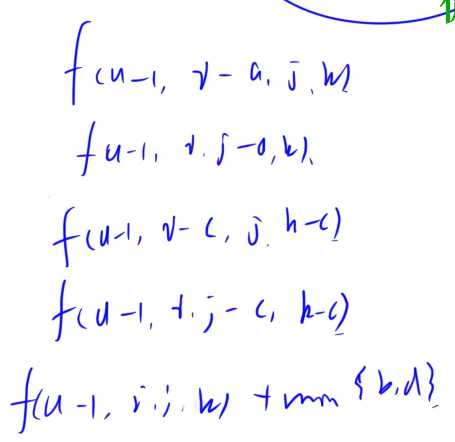 f(u-1, v-a, j, k)
f(u-1, v, j-a, k)
f(u-1, v-c, j, k-c)
f(u-1, v, j-c, k-c)
f(u-1, v, j, k) + min {b,d}